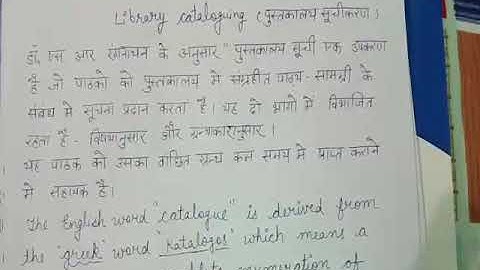 Library cataloguing (पुस्तकालय सूचीकरण)
डॉ. एस आर रंगनाथन के अनुसार "पुस्तकालय सूची एक उपकरण
है जो पाठको को पुस्तकालय मे संग्रहीत पाठ्य-सामग्री के
संबंध मे सूचना प्रदान करता है। यह दो भागो मे विभाजित
रहता है - विषयानुसार और ग्रन्थकारानुसार।
यह पाठक को उसका वांछित ग्रन्थ कम समय मे प्राप्त कराने
मे सहायक है।
The English word "catalogue" is derived from
the 'greek' word 'Katalogos' which means a
enumeration of